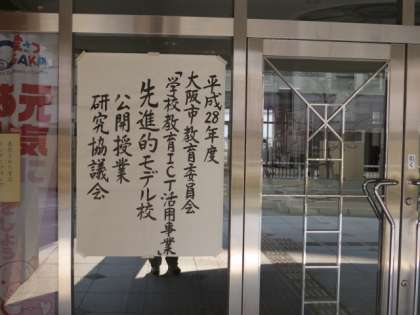 平成28年度
大阪市教育委員会
「学校教育ICT活用事業」
先進的モデル校
公開授業
研究協議会
元気
引く